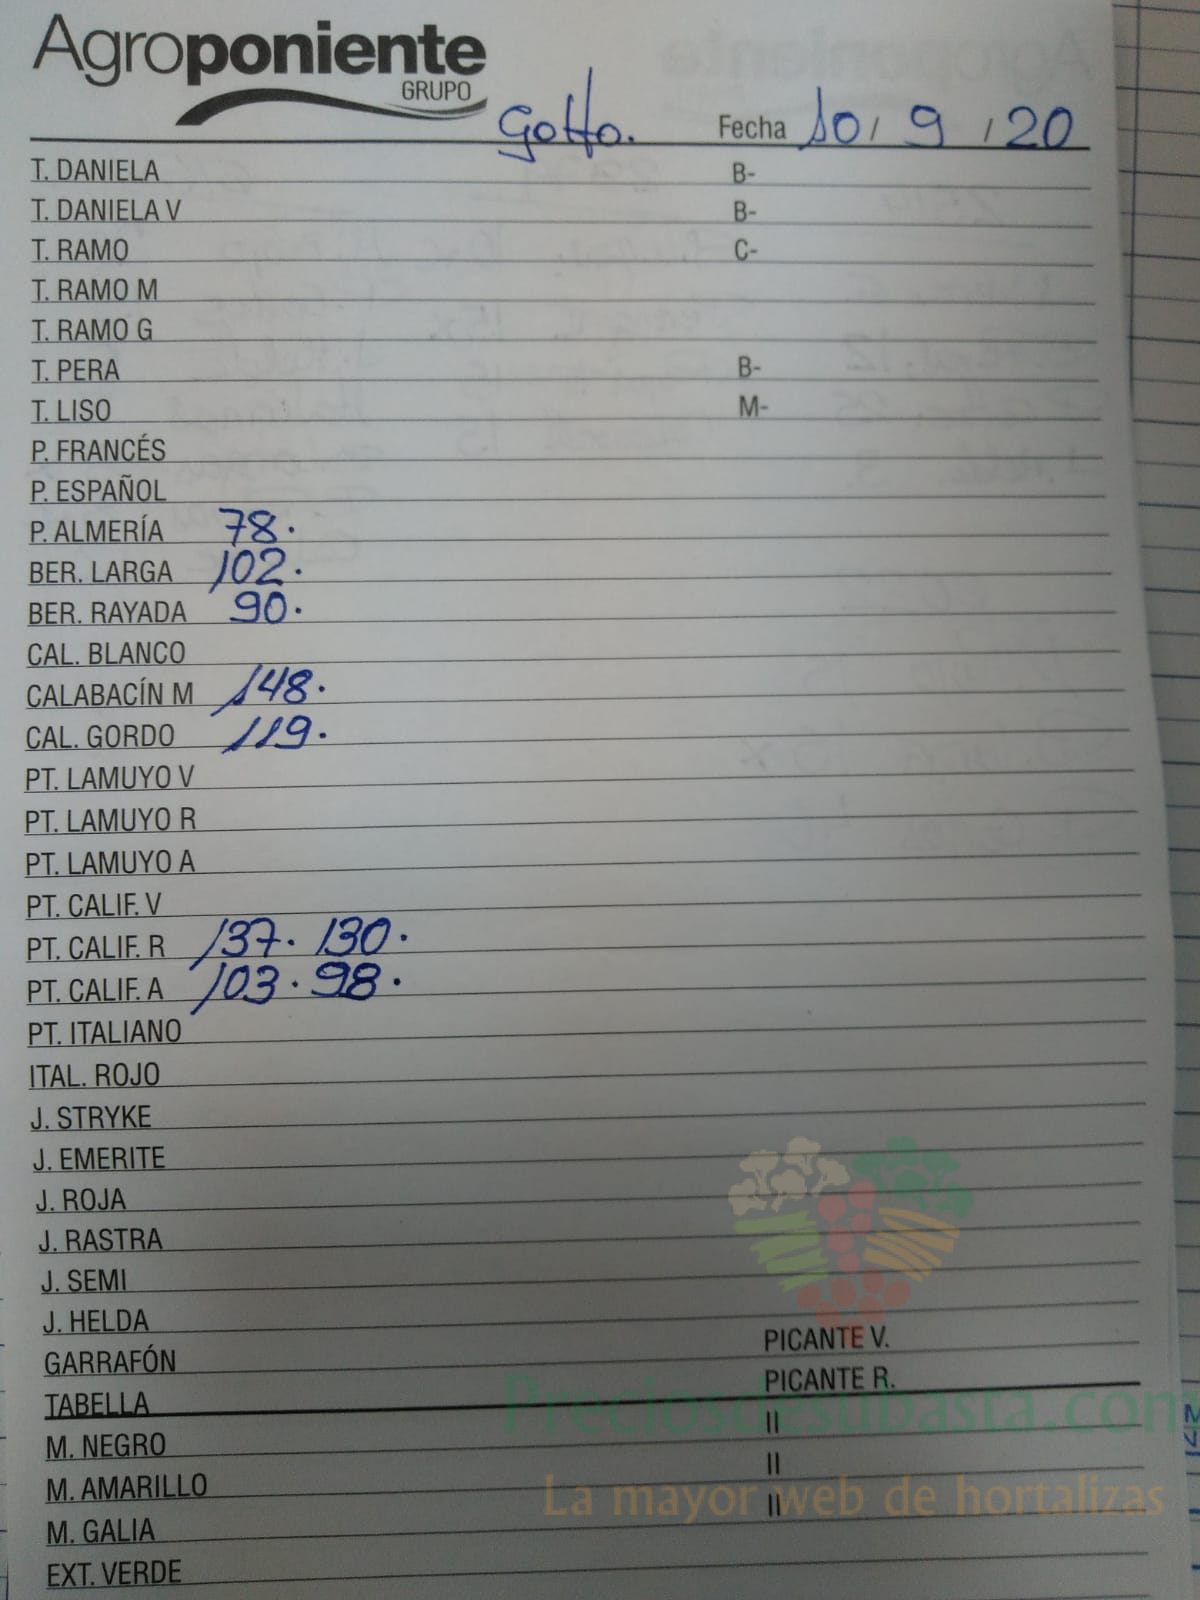 Agroponiente
GRUPO
Gotto. Fecha 10/ 9 / 20
T. DANIELA B-
T. DANIELA V B-
T. RAMO C-
T. RAMO M
T. RAMO G
T. PERA B-
T. LISO M-
P. FRANCÉS
P. ESPAÑOL
P. ALMERÍA 78.
BER. LARGA 102.
BER. RAYADA 90.
CAL. BLANCO
CALABACÍN M 148.
CAL. GORDO 119.
PT. LAMUYO V
PT. LAMUYO R
PT. LAMUYO A
PT. CALIF. V
PT. CALIF. R 137. 130.
PT. CALIF. A 103. 98.
PT. ITALIANO
ITAL. ROJO
J. STRYKE
J. EMERITE
J. ROJA
J. RASTRA
J. SEMI
J. HELDA
GARRAFÓN PICANTE V.
TABELLA PICANTE R.
M. NEGRO II
M. AMARILLO II
M. GALIA II
EXT. VERDE
Preciosdesubasta.com
La mayor web de hortalizas